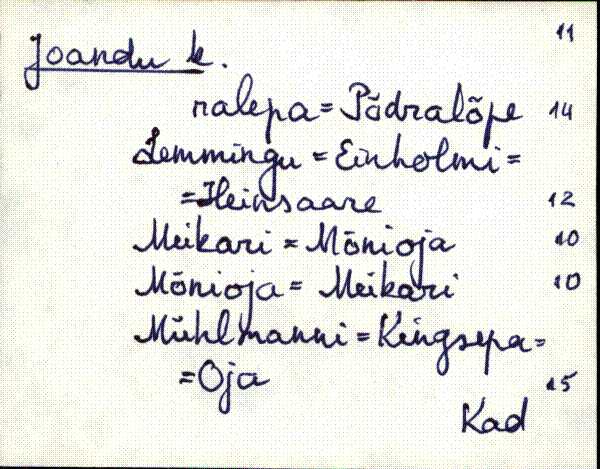 11
Joandu k.
ralepa = Põdralõpe 14
Lemmingu = Einholmi =
= Heinsaare 12
Meikari = Mõnioja 10
Mõnioja = Meikari 10
Mühlmanni = Kingsepa =
= Oja 15
Kad